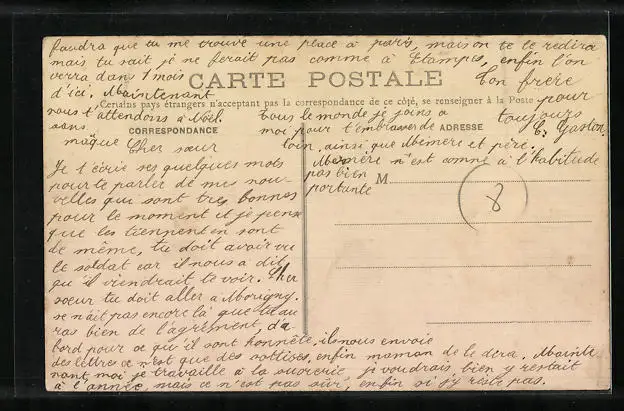 faudra que tu me trouve une place à paris, maison te le redira
mais tu sait je ne ferait pas comme à Etampes, enfin l'on
verra dans 1 mois
CARTE POSTALE
ton frère
d'ici. Maintenant
pour
Certains pays étrangers n'acceptant pas la correspondance de ce côté, se renseigner à la Poste
nous t'attendons à Noël.
sans
maque
tous le monde je joins a
toujours
CORRESPONDANCE
moi pour t'embrasser de
ADRESSE
C. Gaston.
loin, ainsi que Mémère et père.
Mémère n'est comme à l'habitude
pas bien
portante
M
8
Cher sœur
Je t'écrie ses quelques mots
pour te parler de mes nou-
velles qui sont tres bonnes
pour le moment et je pense
que les tiennent en sont
de même, tu doit avoir vu
le soldat car il nous a dit
qu'il viendrait te voir. Cher
sœur tu doit aller a Morigny.
se n'ait pas encore là que tu au
ras bien de l'agrément, d'a
bord pour ce qu'il sont honnête, ils nous envoie
des lettres ce n'est que des sottises, enfin maman te le dira. Mainte
nant moi je travaille à la sucrerie, je voudrais bien y restait
à l'année, mais ce n'est pas sûr, enfin si j'y reste pas.